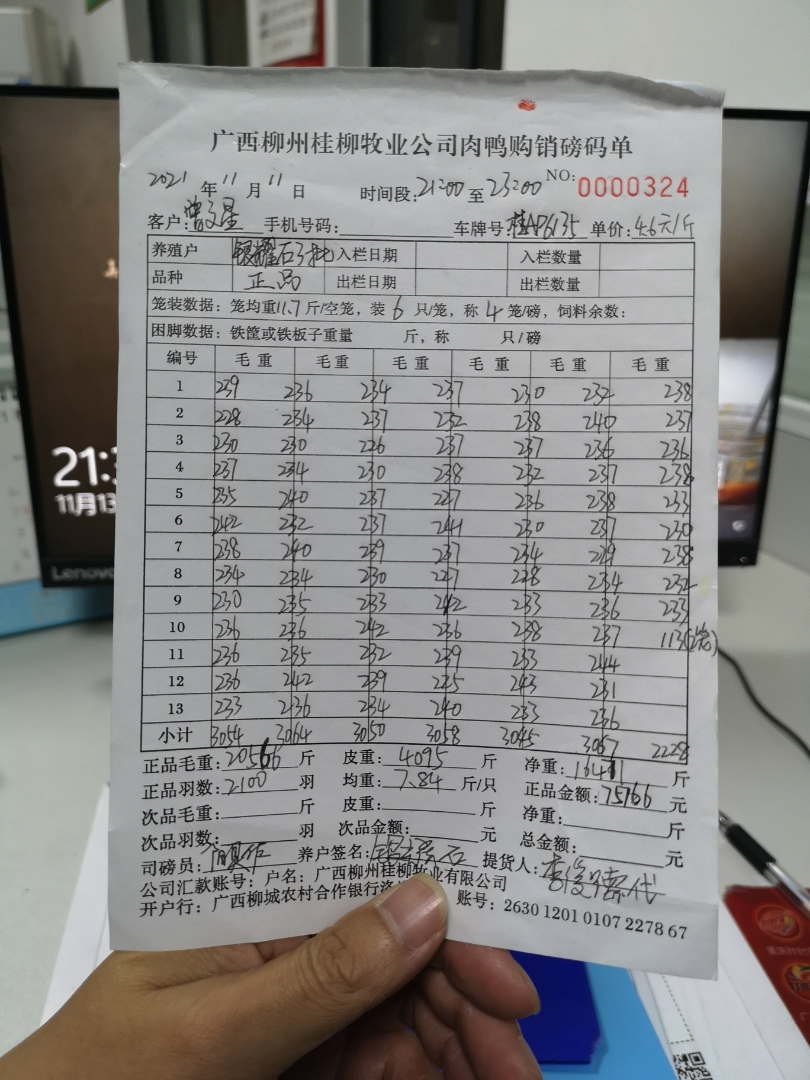 广西柳州桂柳牧业公司肉鸭购销磅码单
2021年11月11日 时间段:21:00至23:00 NO:0000324
客户: 手机号码: 车牌号:桂AP6135 单价:4.6元/斤
养殖户 入栏日期 入栏数量
品种 正品 出栏日期 出栏数量
笼装数据:笼均重11.7斤/空笼,装6只/笼,称4笼/磅,饲料余数:
困脚数据:铁筐或铁板子重量 斤,称 只/磅
编号 毛重 毛重 毛重 毛重 毛重 毛重
1 239 236 234 237 230 232 238
2 228 234 237 232 238 240 237
3 230 230 226 237 237 236 236
4 237 234 230 238 232 237 238
5 235 240 237 227 236 238 233
6 242 232 237 241 230 237 230
7 238 240 239 237 234 229 238
8 234 234 230 227 228 234 232
9 230 235 233 242 233 236 233
10 236 236 242 236 238 237 113(2笼)
11 236 235 232 239 233 244
12 236 242 239 225 243 231
13 233 236 234 240 233 236
小计 3054 3064 3050 3058 3045 3067 2228
正品毛重:20566斤 皮重:4095斤 净重:16471斤
正品羽数:2100羽 均重:7.84斤/只 正品金额:75766元
次品毛重: 斤 皮重: 斤 净重: 斤
次品羽数: 羽 次品金额: 元 总金额: 元
司磅员: 养户签名: 提货人:
公司汇款账号:户名:广西柳州桂柳牧业有限公司
开户行:广西柳城农村合作银行洛 账号:2630 1201 0107 2278 67
21:3
11月13
Lenovo